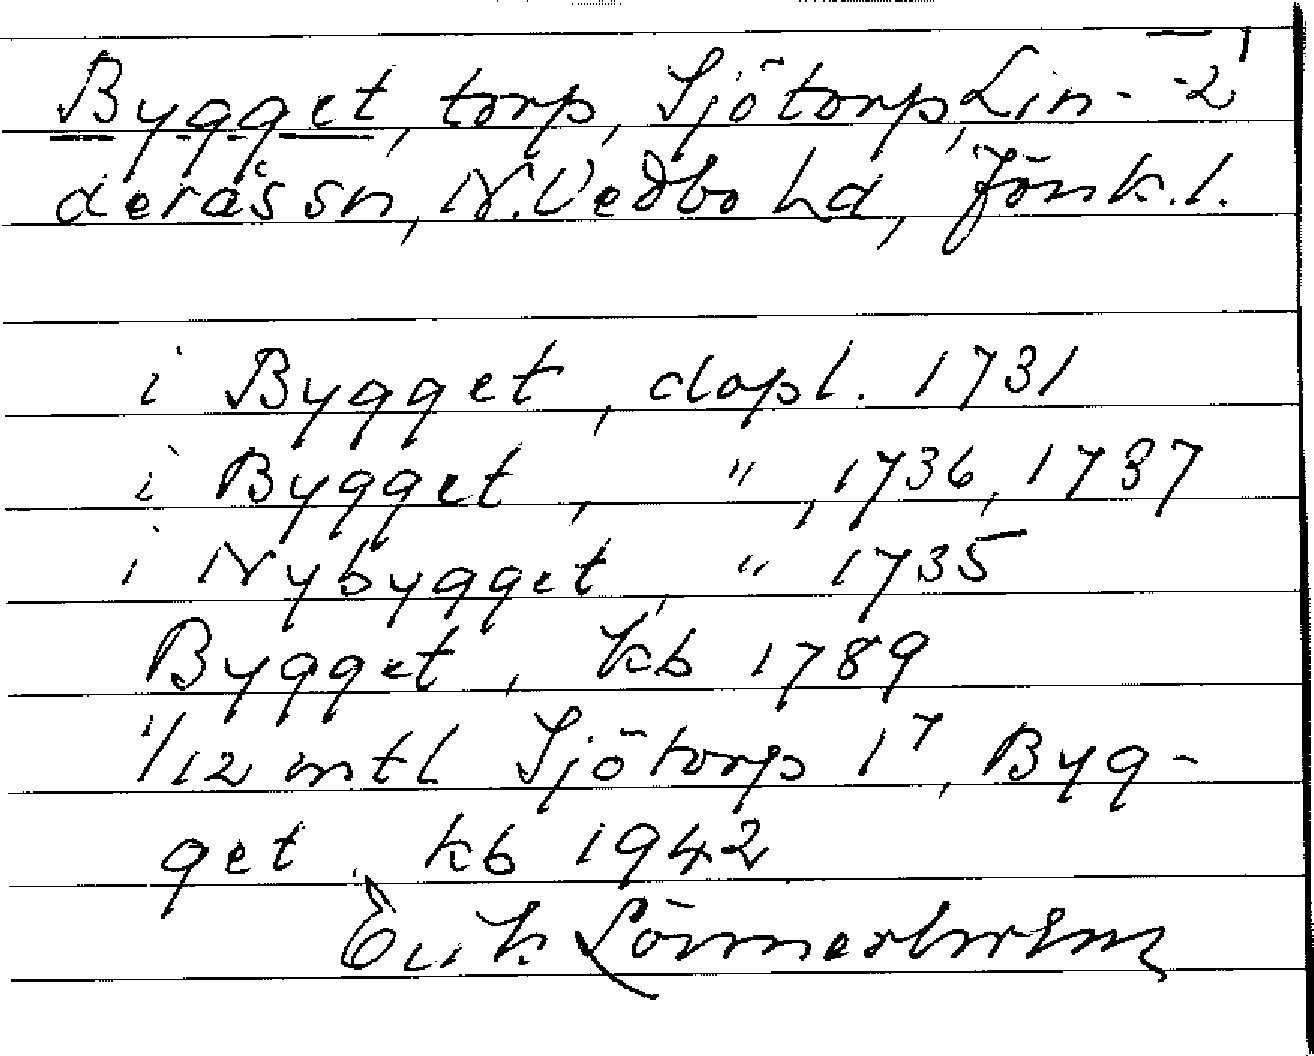 Bygget, torp, Sjötorp, Lin-
deråssn, N. Vedbo hd, Jönk.l.
i Bygget, dopl. 1731
i Bygget, ", 1736, 1737
i Nybygget, " 1735
Bygget, kb 1789
1/12 mtl Sjötorp 1⁷, Byg-
get, kb 1942
Erik Lönnerholm